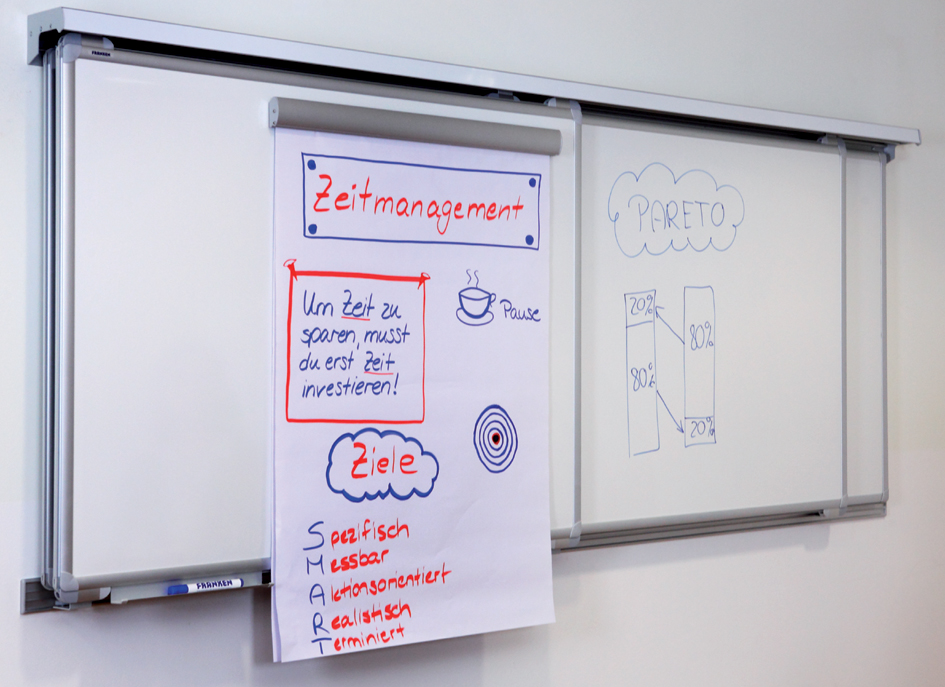 FRANKEN
Zeitmanagement
Um Zeit zu
sparen, musst
du erst Zeit
investieren!
Pause
Ziele
Spezifisch
Messbar
Aktionsorientiert
Realistisch
Terminiert
FRANKEN
PARETO
20%
80%
80%
20%